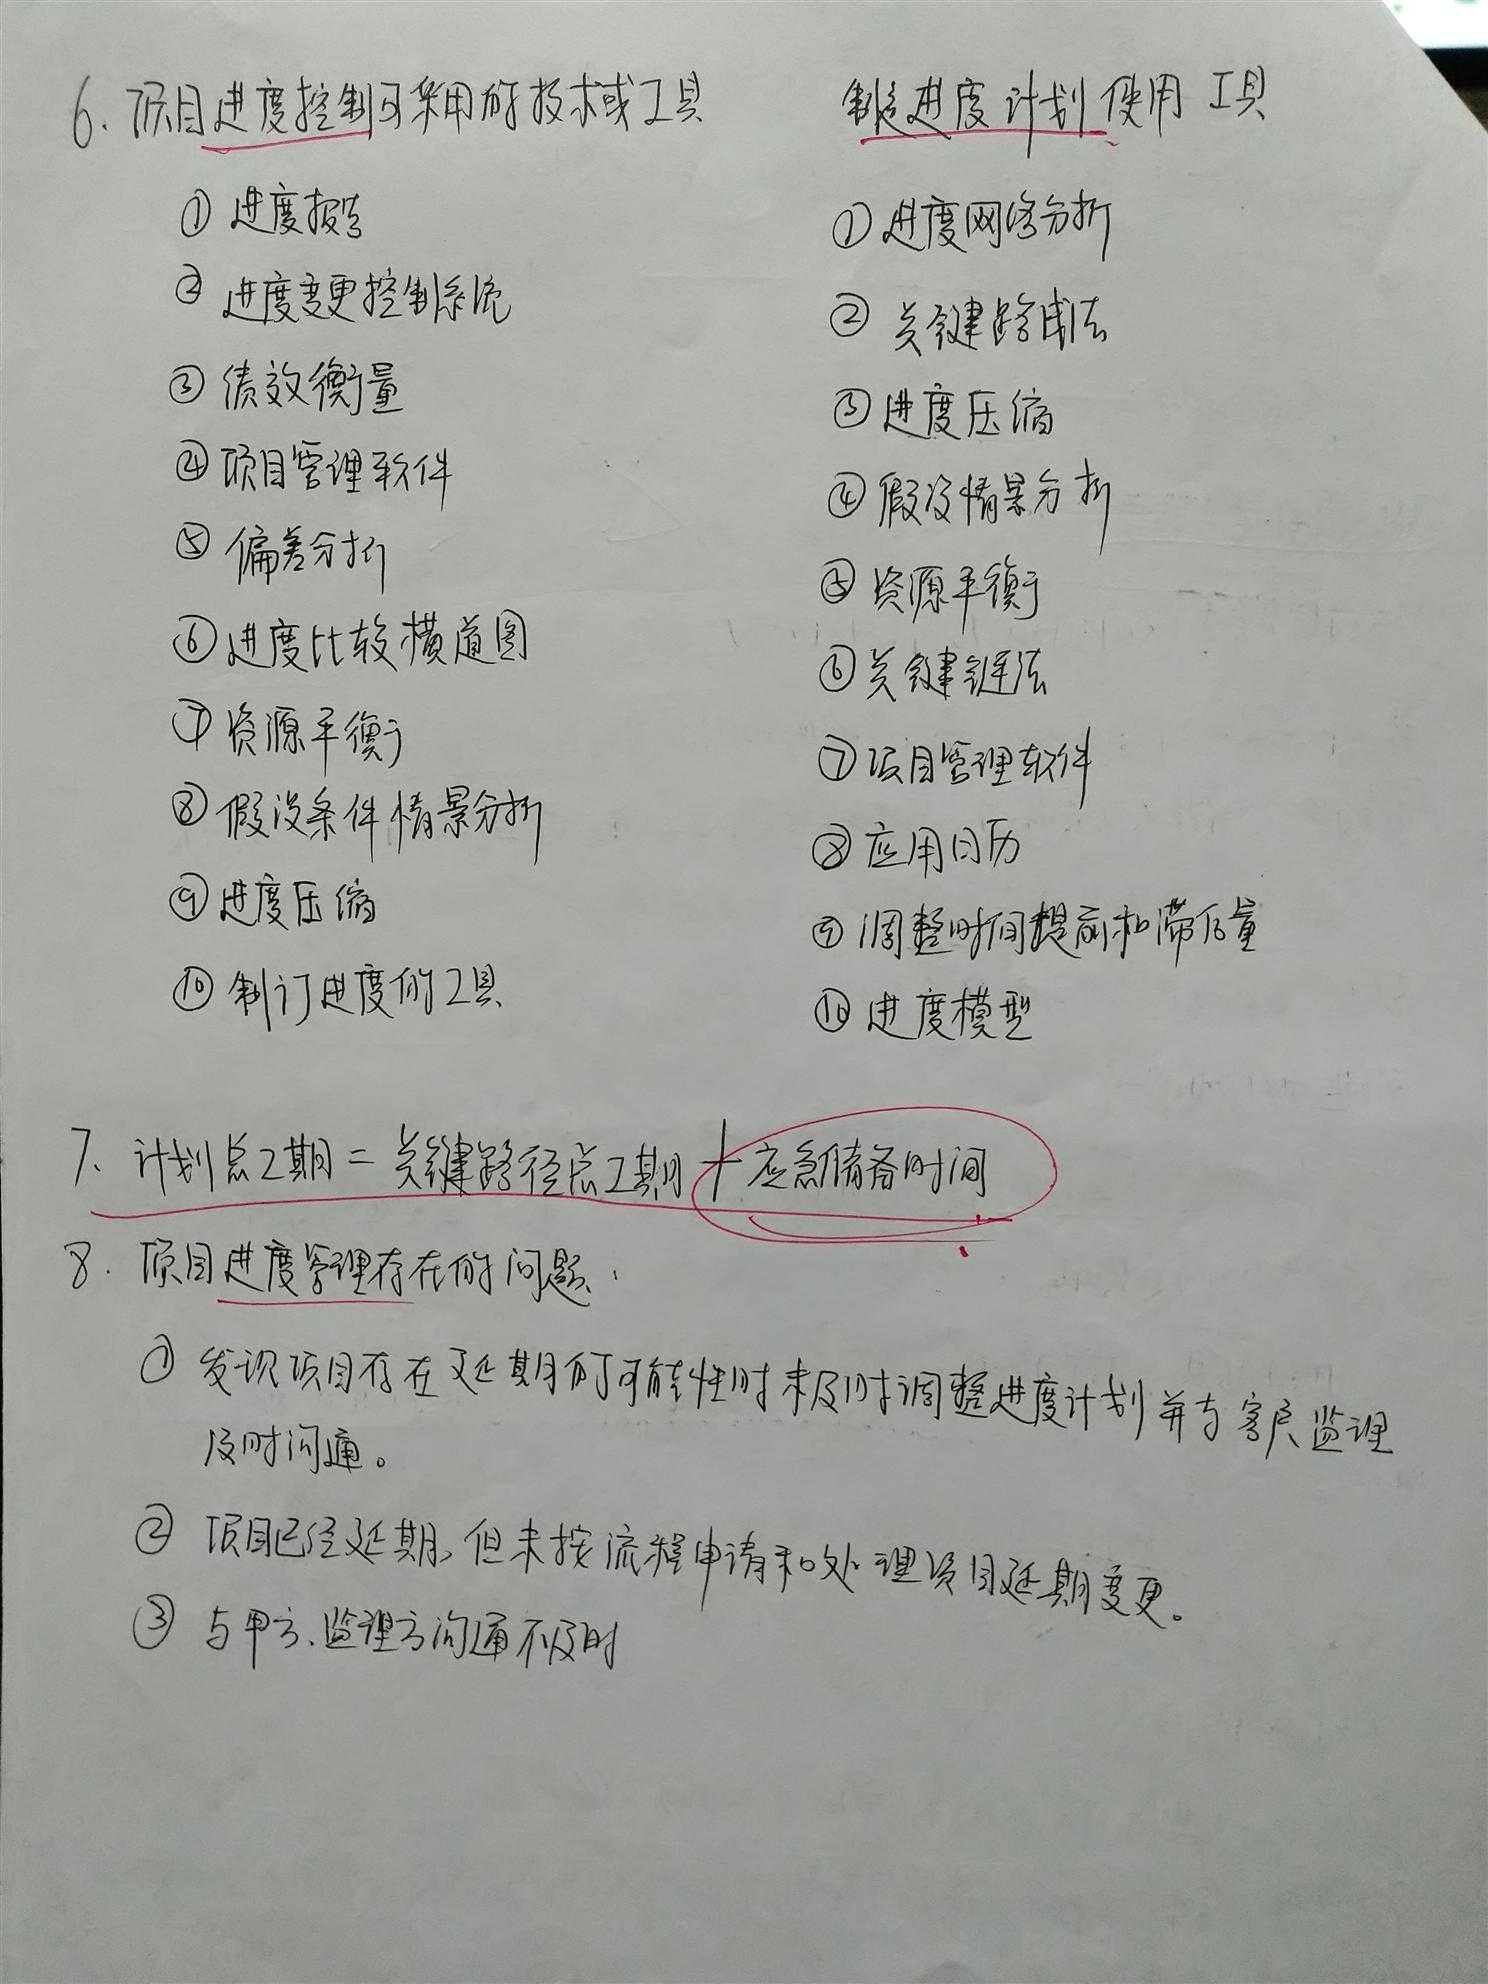 6. 项目进度控制可采用的技术或工具
① 进度报告
② 进度变更控制系统
③ 绩效衡量
④ 项目管理软件
⑤ 偏差分析
⑥ 进度比较横道图
⑦ 资源平衡
⑧ 假设条件情景分析
⑨ 进度压缩
⑩ 制订进度的工具
制定进度计划使用工具
① 进度网络分析
② 关键路线法
③ 进度压缩
④ 假设情景分析
⑤ 资源平衡
⑥ 关键链法
⑦ 项目管理软件
⑧ 应用日历
⑨ 调整时间提前和滞后量
⑩ 进度模型
7. 计划总工期 = 关键路径总工期 + 应急储备时间
8. 项目进度管理存在的问题:
① 发现项目存在延期的可能性时未及时调整进度计划并与客户、监理
及时沟通。
② 项目已经延期,但未按流程申请和处理项目延期变更。
③ 与甲方、监理方沟通不及时